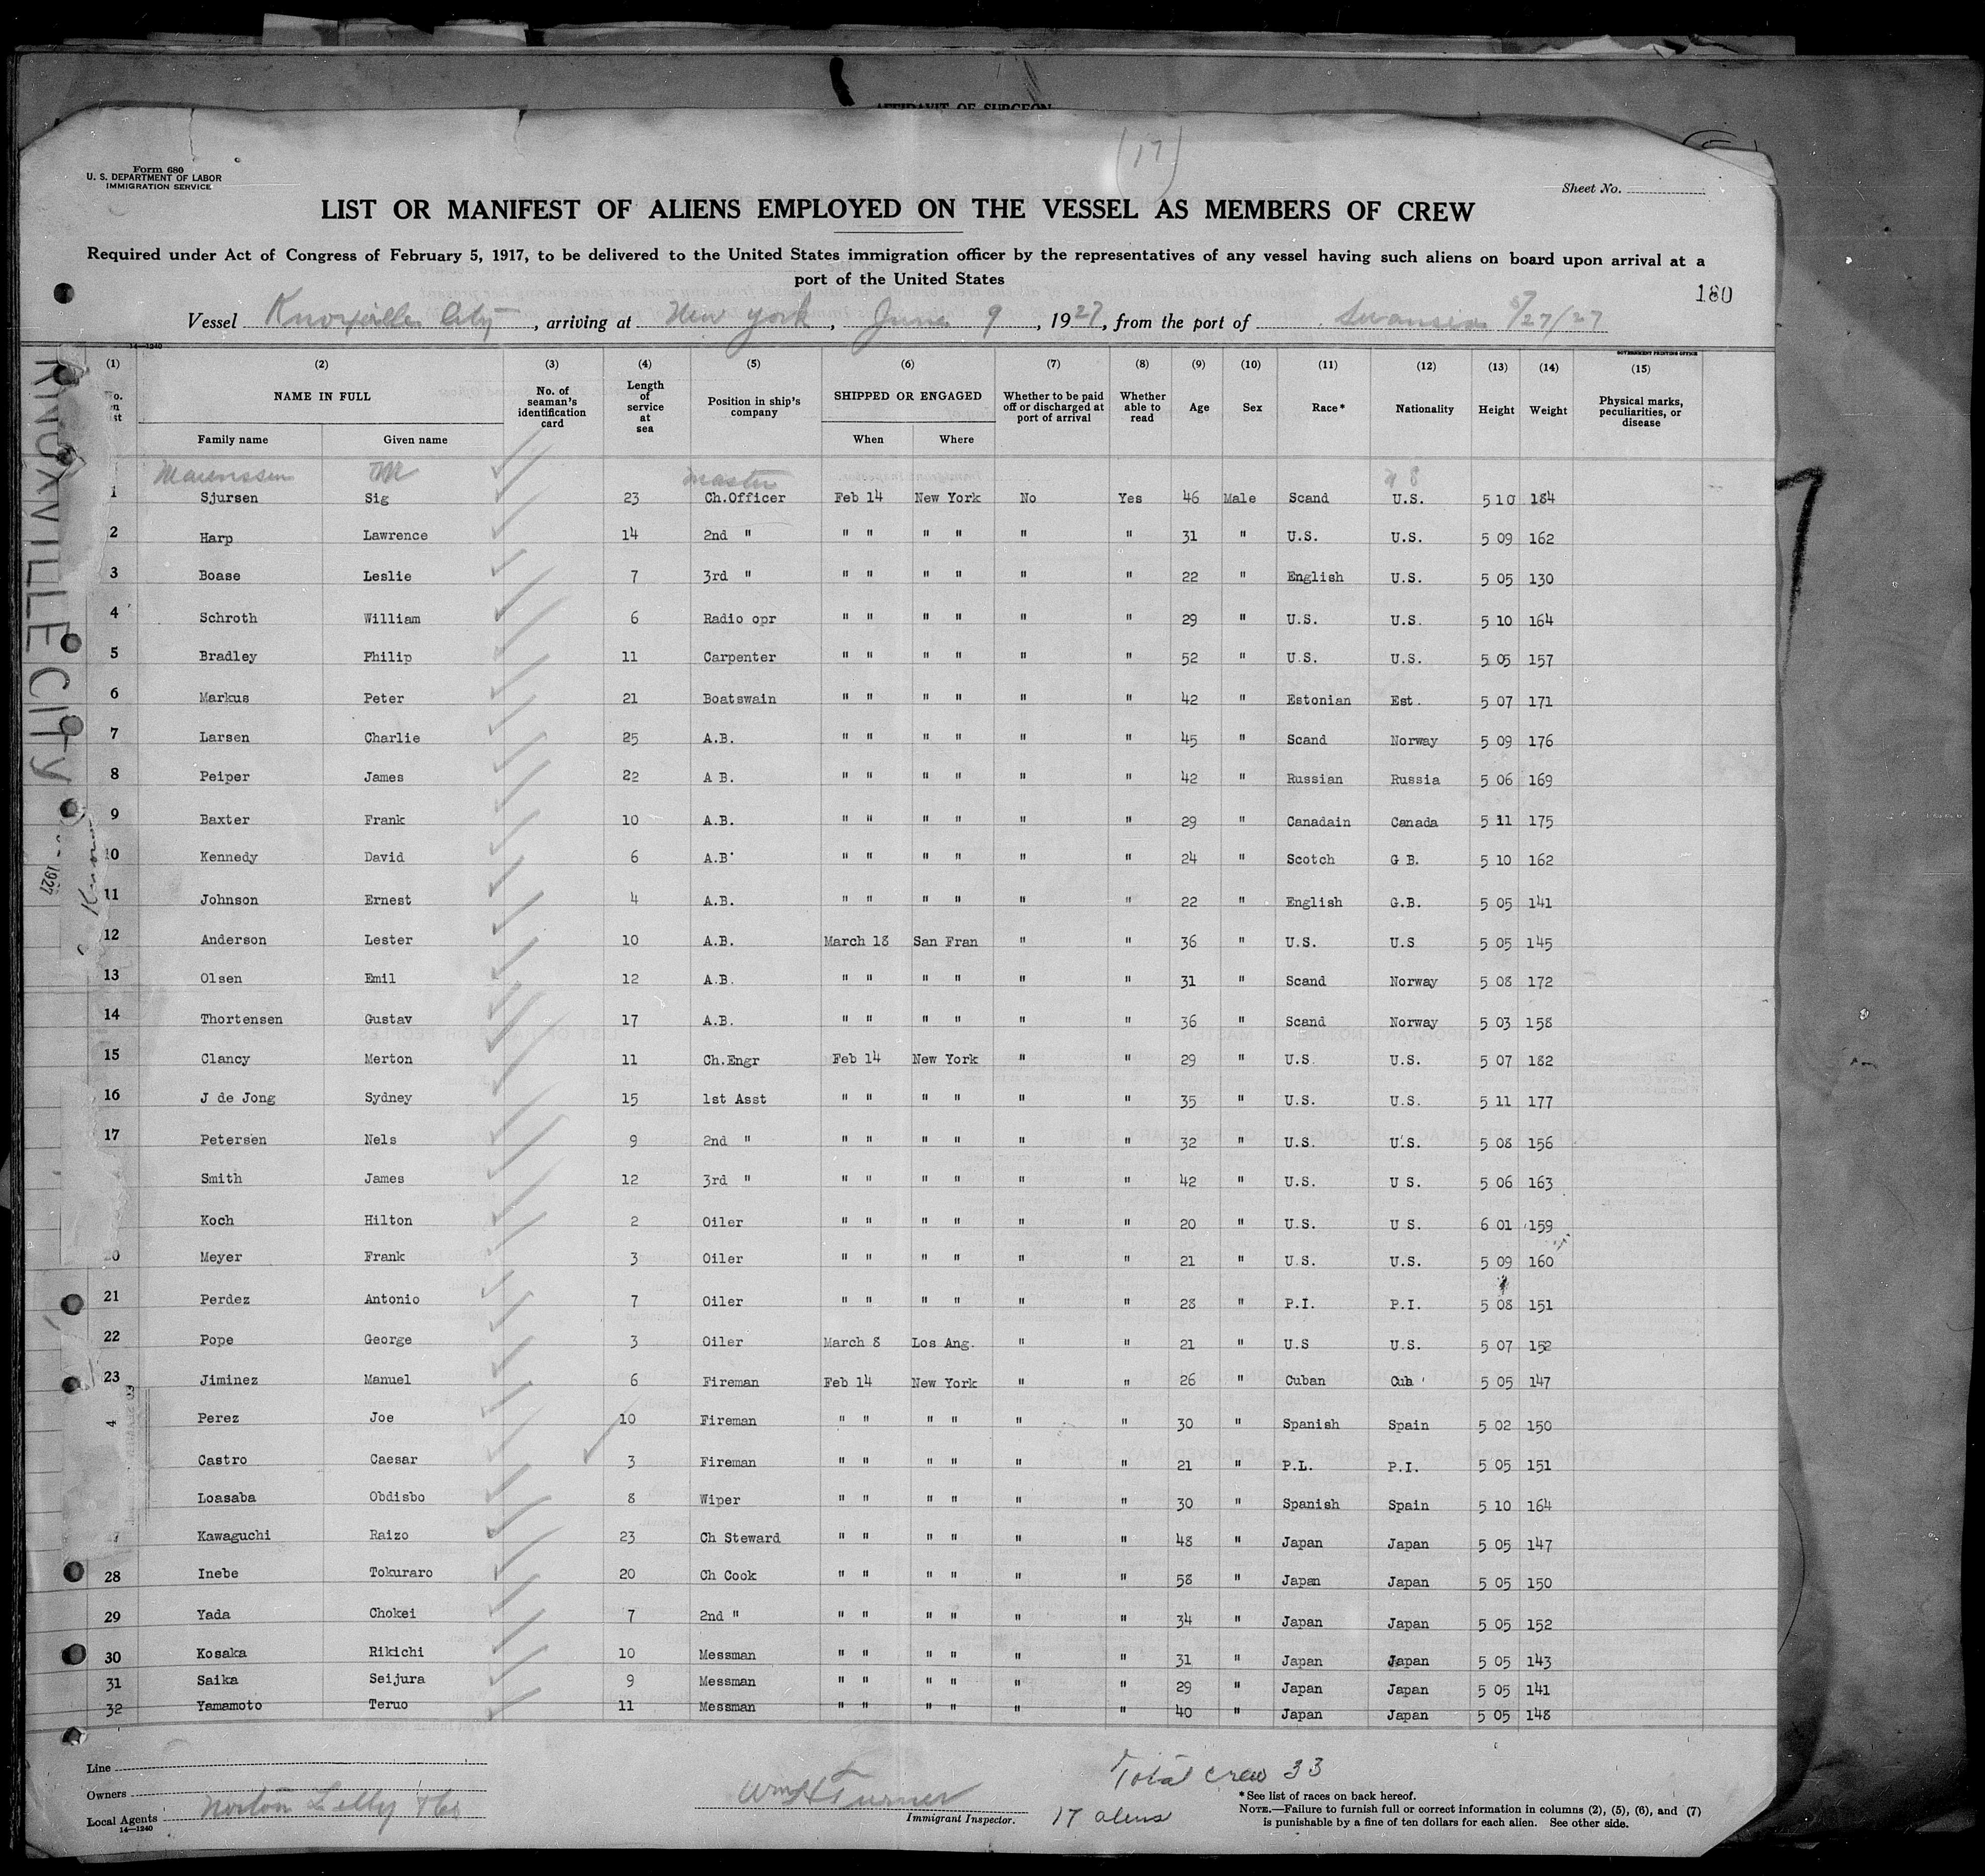 AFFIDAVIT OF SURGEON
(17)
Form 680
U. S. DEPARTMENT OF LABOR
IMMIGRATION SERVICE
Sheet No.
LIST OR MANIFEST OF ALIENS EMPLOYED ON THE VESSEL AS MEMBERS OF CREW
Required under Act of Congress of February 5, 1917, to be delivered to the United States immigration officer by the representatives of any vessel having such aliens on board upon arrival at a
port of the United States
180
Vessel Knoxville City, arriving at New York, June 9, 1927, from the port of Swansea 5/27/27
14—1240
GOVERNMENT PRINTING OFFICE
KNOXVILLE CITY
1927
(1) (2) (3) (4) (5) (6) (7) (8) (9) (10) (11) (12) (13) (14) (15)
NAME IN FULL No. of seaman's identification card Length of service at sea Position in ship's company SHIPPED OR ENGAGED Whether to be paid off or discharged at port of arrival Whether able to read Age Sex Race* Nationality Height Weight Physical marks, peculiarities, or disease
Family name Given name When Where
M master
1 Sjursen Sig 23 Ch.Officer Feb 14 New York No Yes 46 Male Scand U.S. 5 10 184
2 Harp Lawrence 14 2nd " " " " " " " 31 " U.S. U.S. 5 09 162
3 Boase Leslie 7 3rd " " " " " " " 22 " English U.S. 5 05 130
4 Schroth William 6 Radio opr " " " " " " 29 " U.S. U.S. 5 10 164
5 Bradley Philip 11 Carpenter " " " " " " 52 " U.S. U.S. 5 05 157
6 Markus Peter 21 Boatswain " " " " " " 42 " Estonian Est. 5 07 171
7 Larsen Charlie 25 A.B. " " " " " " 45 " Scand Norway 5 09 176
8 Peiper James 22 A B. " " " " " " 42 " Russian Russia 5 06 169
9 Baxter Frank 10 A.B. " " " " " " 29 " Canadain Canada 5 11 175
10 Kennedy David 6 A.B. " " " " " " 24 " Scotch G B. 5 10 162
11 Johnson Ernest 4 A.B. " " " " " " 22 " English G.B. 5 05 141
12 Anderson Lester 10 A.B. March 18 San Fran " " 36 " U.S. U.S 5 05 145
13 Olsen Emil 12 A.B. " " " " " " 31 " Scand Norway 5 08 172
14 Thortensen Gustav 17 A.B. " " " " " " 36 " Scand Norway 5 03 158
15 Clancy Merton 11 Ch.Engr Feb 14 New York " " 29 " U.S. U.S. 5 07 182
16 J de Jong Sydney 15 1st Asst " " " " " " 35 " U.S. U.S. 5 11 177
17 Petersen Nels 9 2nd " " " " " " " 32 " U.S. U.S. 5 08 156
Smith James 12 3rd " " " " " " " 42 " U.S. U S. 5 06 163
Koch Hilton 2 Oiler " " " " " " 20 " U.S. U S. 6 01 159
0 Meyer Frank 3 Oiler " " " " " " 21 " U.S. U.S. 5 09 160
21 Perdez Antonio 7 Oiler " " " " " " 28 " P.I. P.I. 5 08 151
22 Pope George 3 Oiler March 8 Los Ang. " " 21 " U.S U.S. 5 07 152
23 Jiminez Manuel 6 Fireman Feb 14 New York " " 26 " Cuban Cub 5 05 147
4 Perez Joe 10 Fireman " " " " " " 30 " Spanish Spain 5 02 150
Castro Caesar 3 Fireman " " " " " " 21 " P.L. P.I. 5 05 151
Loasaba Obdisbo 8 Wiper " " " " " " 30 " Spanish Spain 5 10 164
Kawaguchi Raizo 23 Ch Steward " " " " " " 48 " Japan Japan 5 05 147
28 Inebe Tokuraro 20 Ch Cook " " " " " " 58 " Japan Japan 5 05 150
29 Yada Chokei 7 2nd " " " " " " " 34 " Japan Japan 5 05 152
30 Kosaka Rikichi 10 Messman " " " " " " 31 " Japan Japan 5 05 143
31 Saika Seijura 9 Messman " " " " " " 29 " Japan Japan 5 05 141
32 Yamamoto Teruo 11 Messman " " " " " " 40 " Japan Japan 5 05 148
Line
Owners
Local Agents Norton Lilly & Co
14—1240
Wm H Turner
Immigrant Inspector.
Total crew 33
17 aliens
*See list of races on back hereof.
NOTE.—Failure to furnish full or correct information in columns (2), (5), (6), and (7)
is punishable by a fine of ten dollars for each alien. See other side.